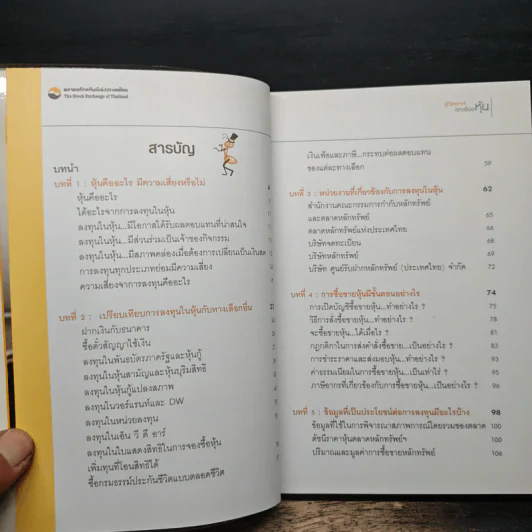 ตลาดหลักทรัพย์แห่งประเทศไทย
The Stock Exchange of Thailand
สารบัญ
บทนำ
บทที่ 1 : หุ้นคืออะไร มีความเสี่ยงหรือไม่
หุ้นคืออะไร
ได้อะไรจากการลงทุนในหุ้น
ลงทุนในหุ้น...มีโอกาสได้รับผลตอบแทนที่น่าสนใจ
ลงทุนในหุ้น...มีส่วนร่วมเป็นเจ้าของกิจการ
ลงทุนในหุ้น...มีสภาพคล่องเมื่อต้องการเปลี่ยนเป็นเงินสด
การลงทุนทุกประเภทย่อมมีความเสี่ยง
ความเสี่ยงจาการลงทุนหุ้นคืออะไร
บทที่ 2 : เปรียบเทียบการลงทุนในหุ้นกับทางเลือกอื่น
ฝากเงินกับธนาคาร
ซื้อตั๋วสัญญาใช้เงิน
ลงทุนในพันธบัตรภาครัฐและหุ้นกู้
ลงทุนในหุ้นสามัญและหุ้นบุริมสิทธิ
ลงทุนในหุ้นกู้แปลงสภาพ
ลงทุนในวอร์แรนท์และ DW
ลงทุนในหน่วยลงทุน
ลงทุนในเอ็น วี ดี อาร์
ลงทุนในใบแสดงสิทธิในการจองซื้อหุ้น
เพิ่มทุนที่โอนสิทธิได้
ซื้อกรมธรรม์ประกันชีวิตแบบตลอดชีวิต
หุ้น
เงินเฟ้อและภาษี...กระทบต่อผลตอบแทน
ของแต่ละทางเลือก 59
บทที่ 3 : หน่วยงานที่เกี่ยวข้องกับการลงทุนในหุ้น 62
สำนักงานคณะกรรมการกำกับหลักทรัพย์
และตลาดหลักทรัพย์ 65
ตลาดหลักทรัพย์แห่งประเทศไทย 66
บริษัทจดทะเบียน 68
บริษัทหลักทรัพย์ 69
บริษัท ศูนย์รับฝากหลักทรัพย์ (ประเทศไทย) จำกัด 72
บทที่ 4 : การซื้อขายหุ้นมีขั้นตอนอย่างไร 74
การเปิดบัญชีซื้อขายหุ้น...ทำอย่างไร ? 75
วิธีการสั่งซื้อขายหุ้น...ทำอย่างไร ? 78
จะซื้อขายหุ้น...ได้เมื่อไร ? 81
กฎกติกาในการส่งคำสั่งซื้อขาย...เป็นอย่างไร ? 83
การชำระราคาและส่งมอบหุ้น...ทำอย่างไร ? 93
ค่าธรรมเนียมในการซื้อขายหุ้น...เป็นเท่าไร ? 95
ภาษีอากรที่เกี่ยวข้องกับการซื้อขายหุ้น...เป็นอย่างไร ? 96
บทที่ 5 : ข้อมูลที่เป็นประโยชน์ต่อการลงทุนมีอะไรบ้าง 98
ข้อมูลที่ใช้ในการพิจารณาสภาพการณ์โดยรวมของตลาด 100
ดัชนีราคาหุ้นตลาดหลักทรัพย์ฯ 100
ปริมาณและมูลค่าการซื้อขายหลักทรัพย์ 106